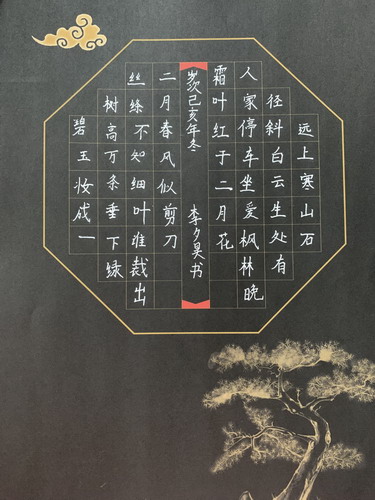 远上寒山石
径斜白云生处有
人家停车坐爱枫林晚
霜叶红于二月花
碧玉妆成一
树高万条垂下绿
丝绦不知细叶谁裁出
二月春风似剪刀
岁次己亥年冬 李夕昊书